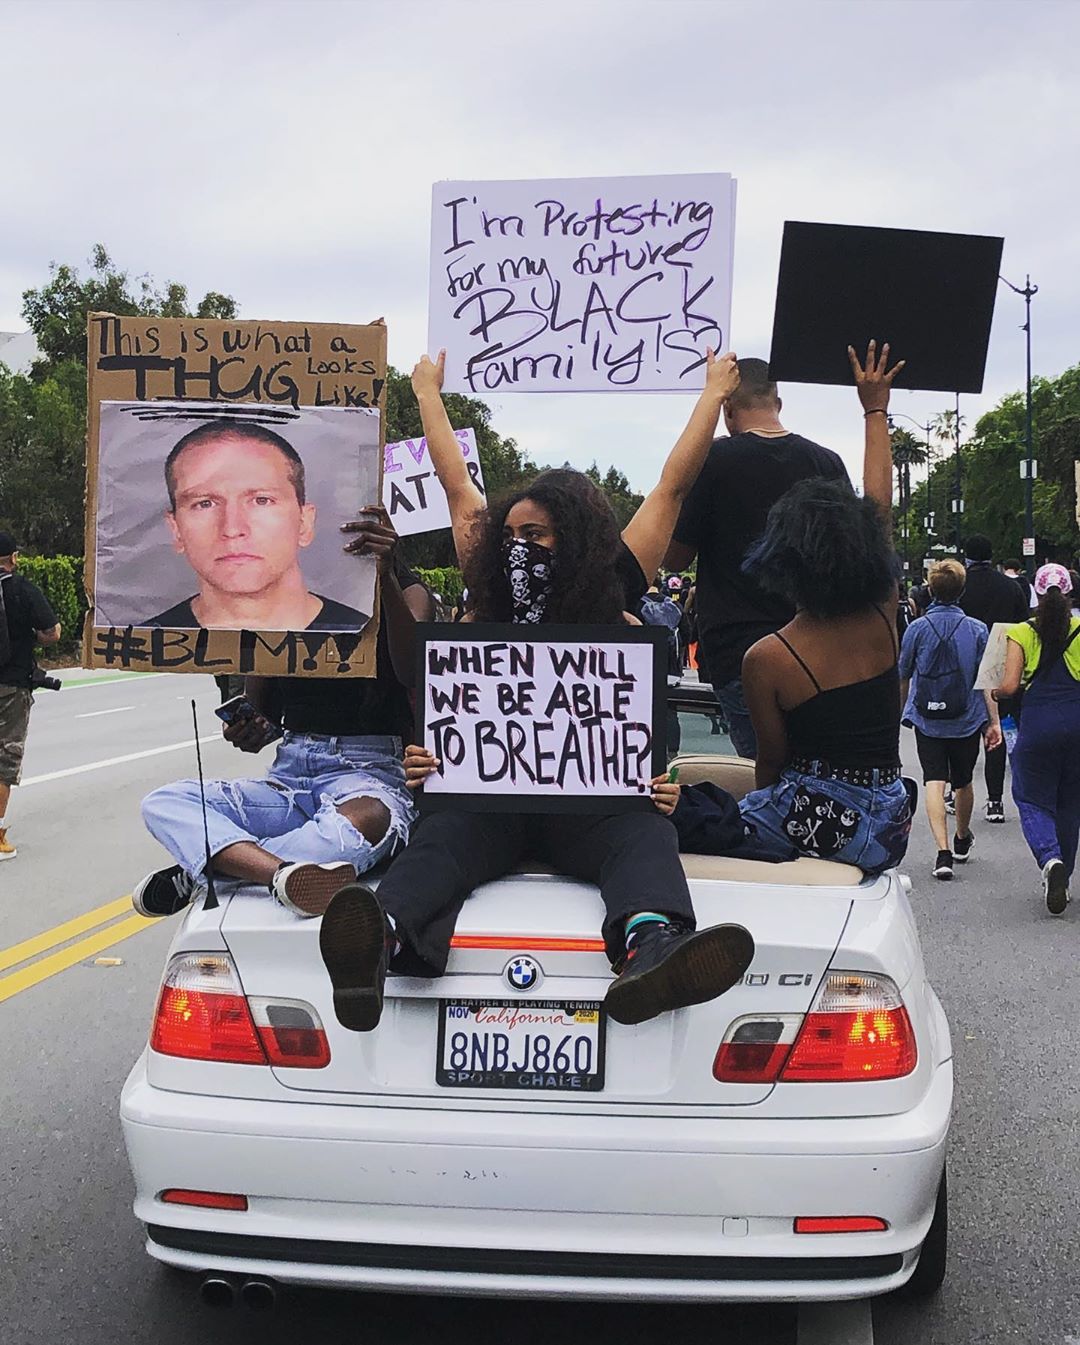 I'm Protesting
for my future
BLACK
family!
This is what a
THUG Looks
Like!
#BLM!!
WHEN WILL
WE BE ABLE
TO BREATHE?
I'D RATHER BE PLAYING TENNIS
NOV California 2020
8NBJ860
SPORT CHALET
Ci
HBO